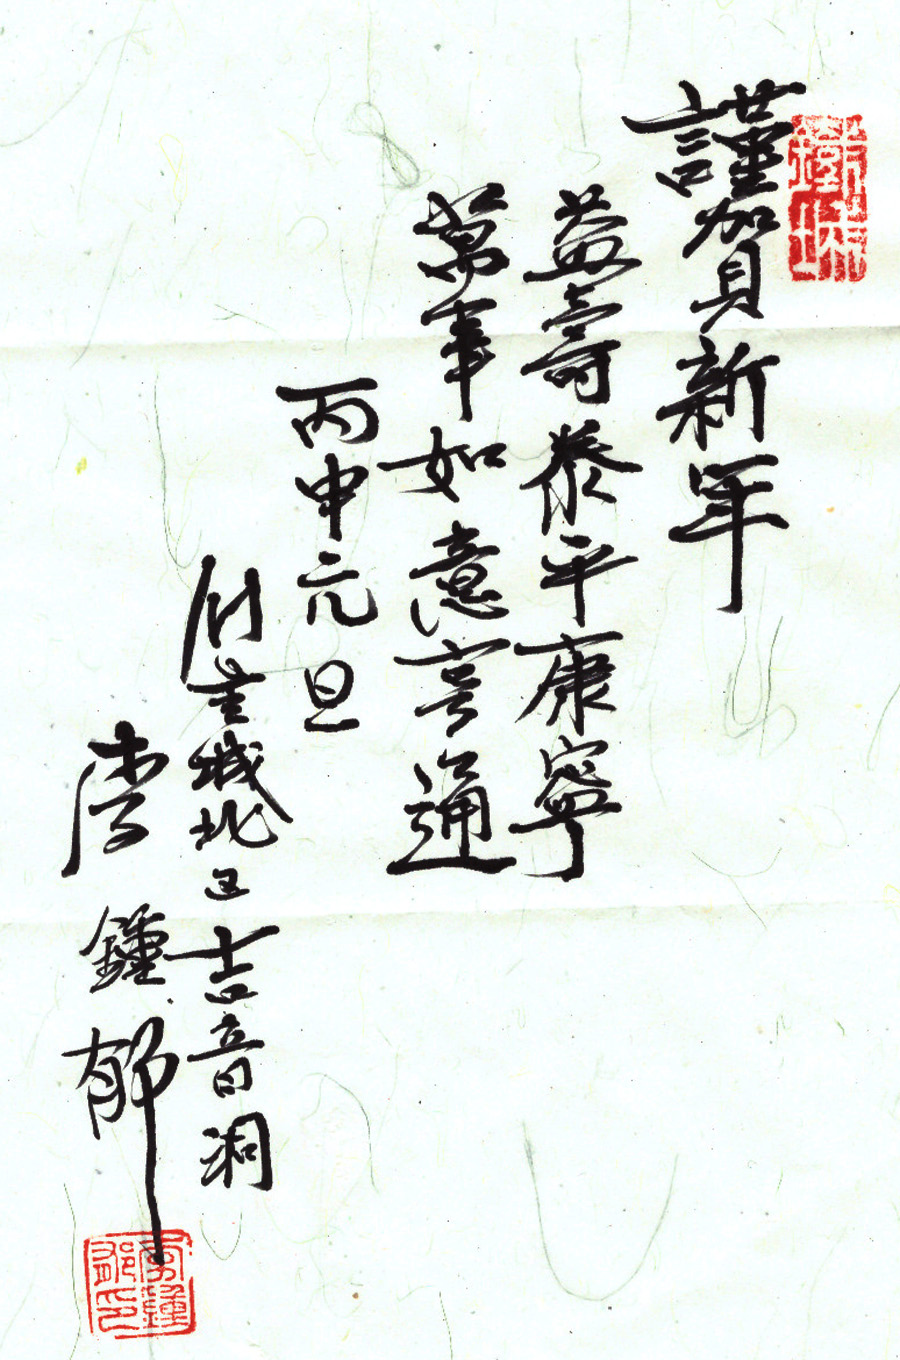 謹賀新年
益壽泰平康寧
萬事如意亨通
丙申元旦
城北 吉音洞
李鍾郁